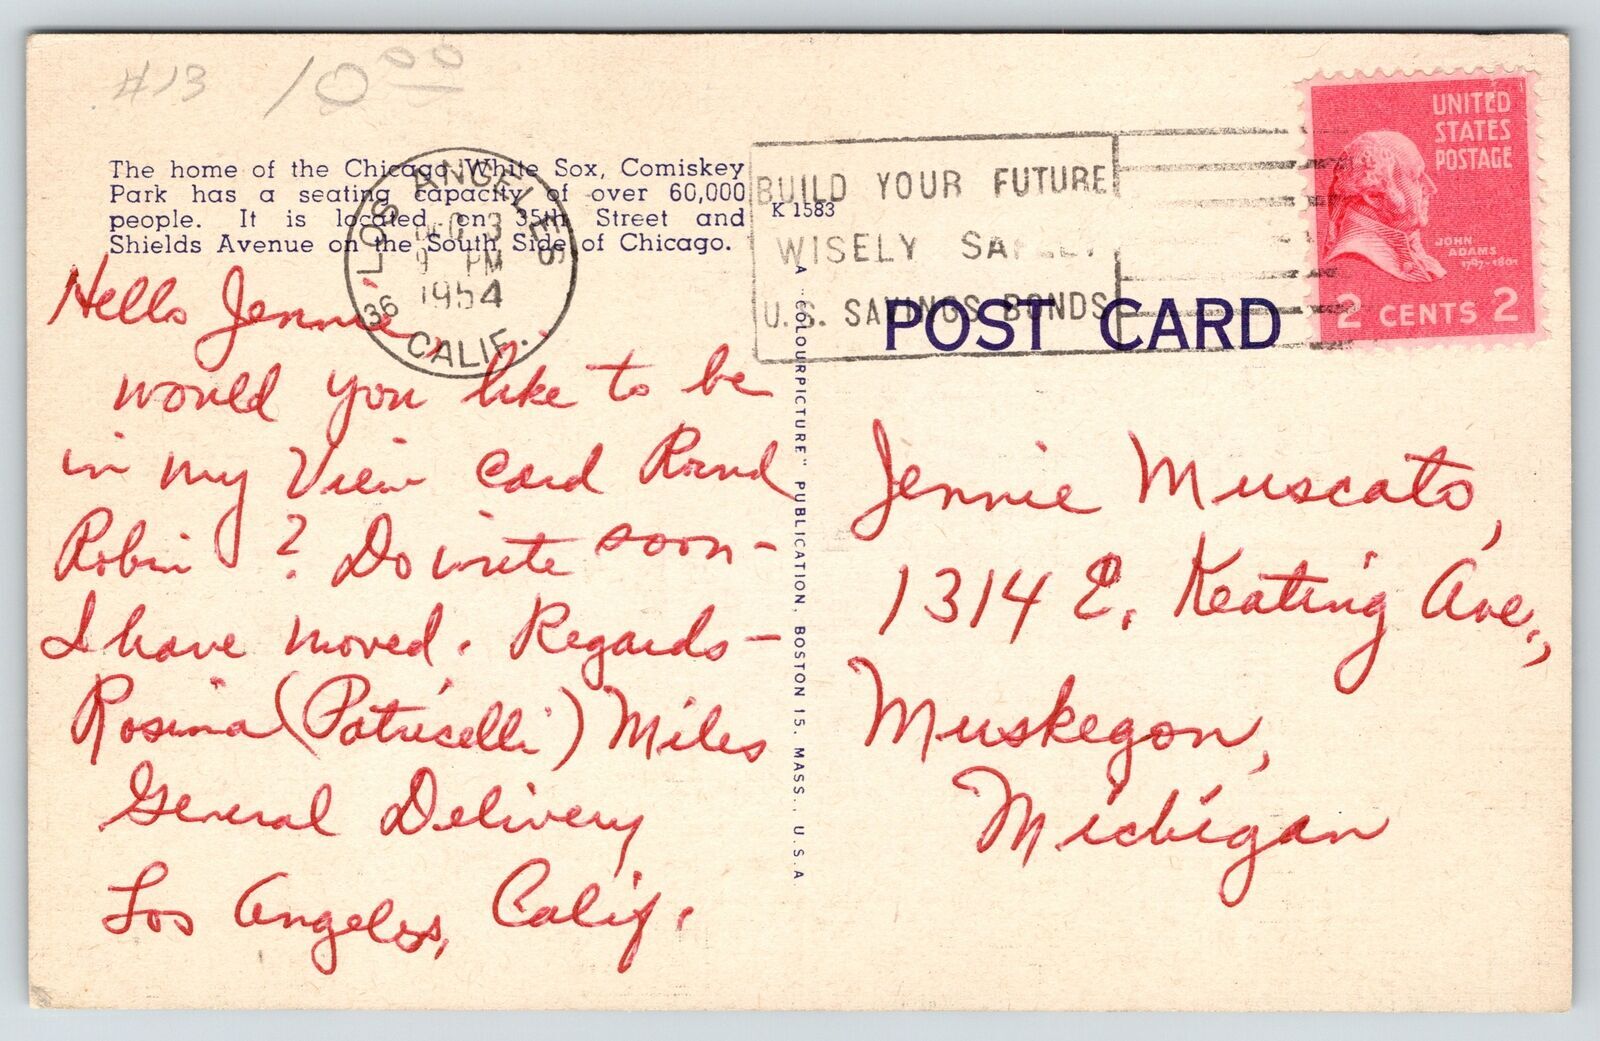 #13 10.00
The home of the Chicago White Sox, Comiskey
Park has a seating capacity of over 60,000
people. It is located on 35th Street and
Shields Avenue on the South Side of Chicago.
K 1583
LOS ANGELES
DEC 3
9 PM
1954
36
CALIF.
BUILD YOUR FUTURE
WISELY SAFELY
U.S. SAVINGS BONDS
UNITED
STATES
POSTAGE
JOHN
ADAMS
1797-1801
2 CENTS 2
POST CARD
A "COLOURPICTURE" PUBLICATION, BOSTON 15, MASS., U.S.A.
Hello Jennie,
would you like to be
in my View card Round
Robin? Do write soon -
I have moved. Regards -
Rosina (Patricelli) Miles
General Delivery
Los Angeles, Calif.
Jennie Muscato,
1314 E. Keating Ave.,
Muskegon,
Michigan